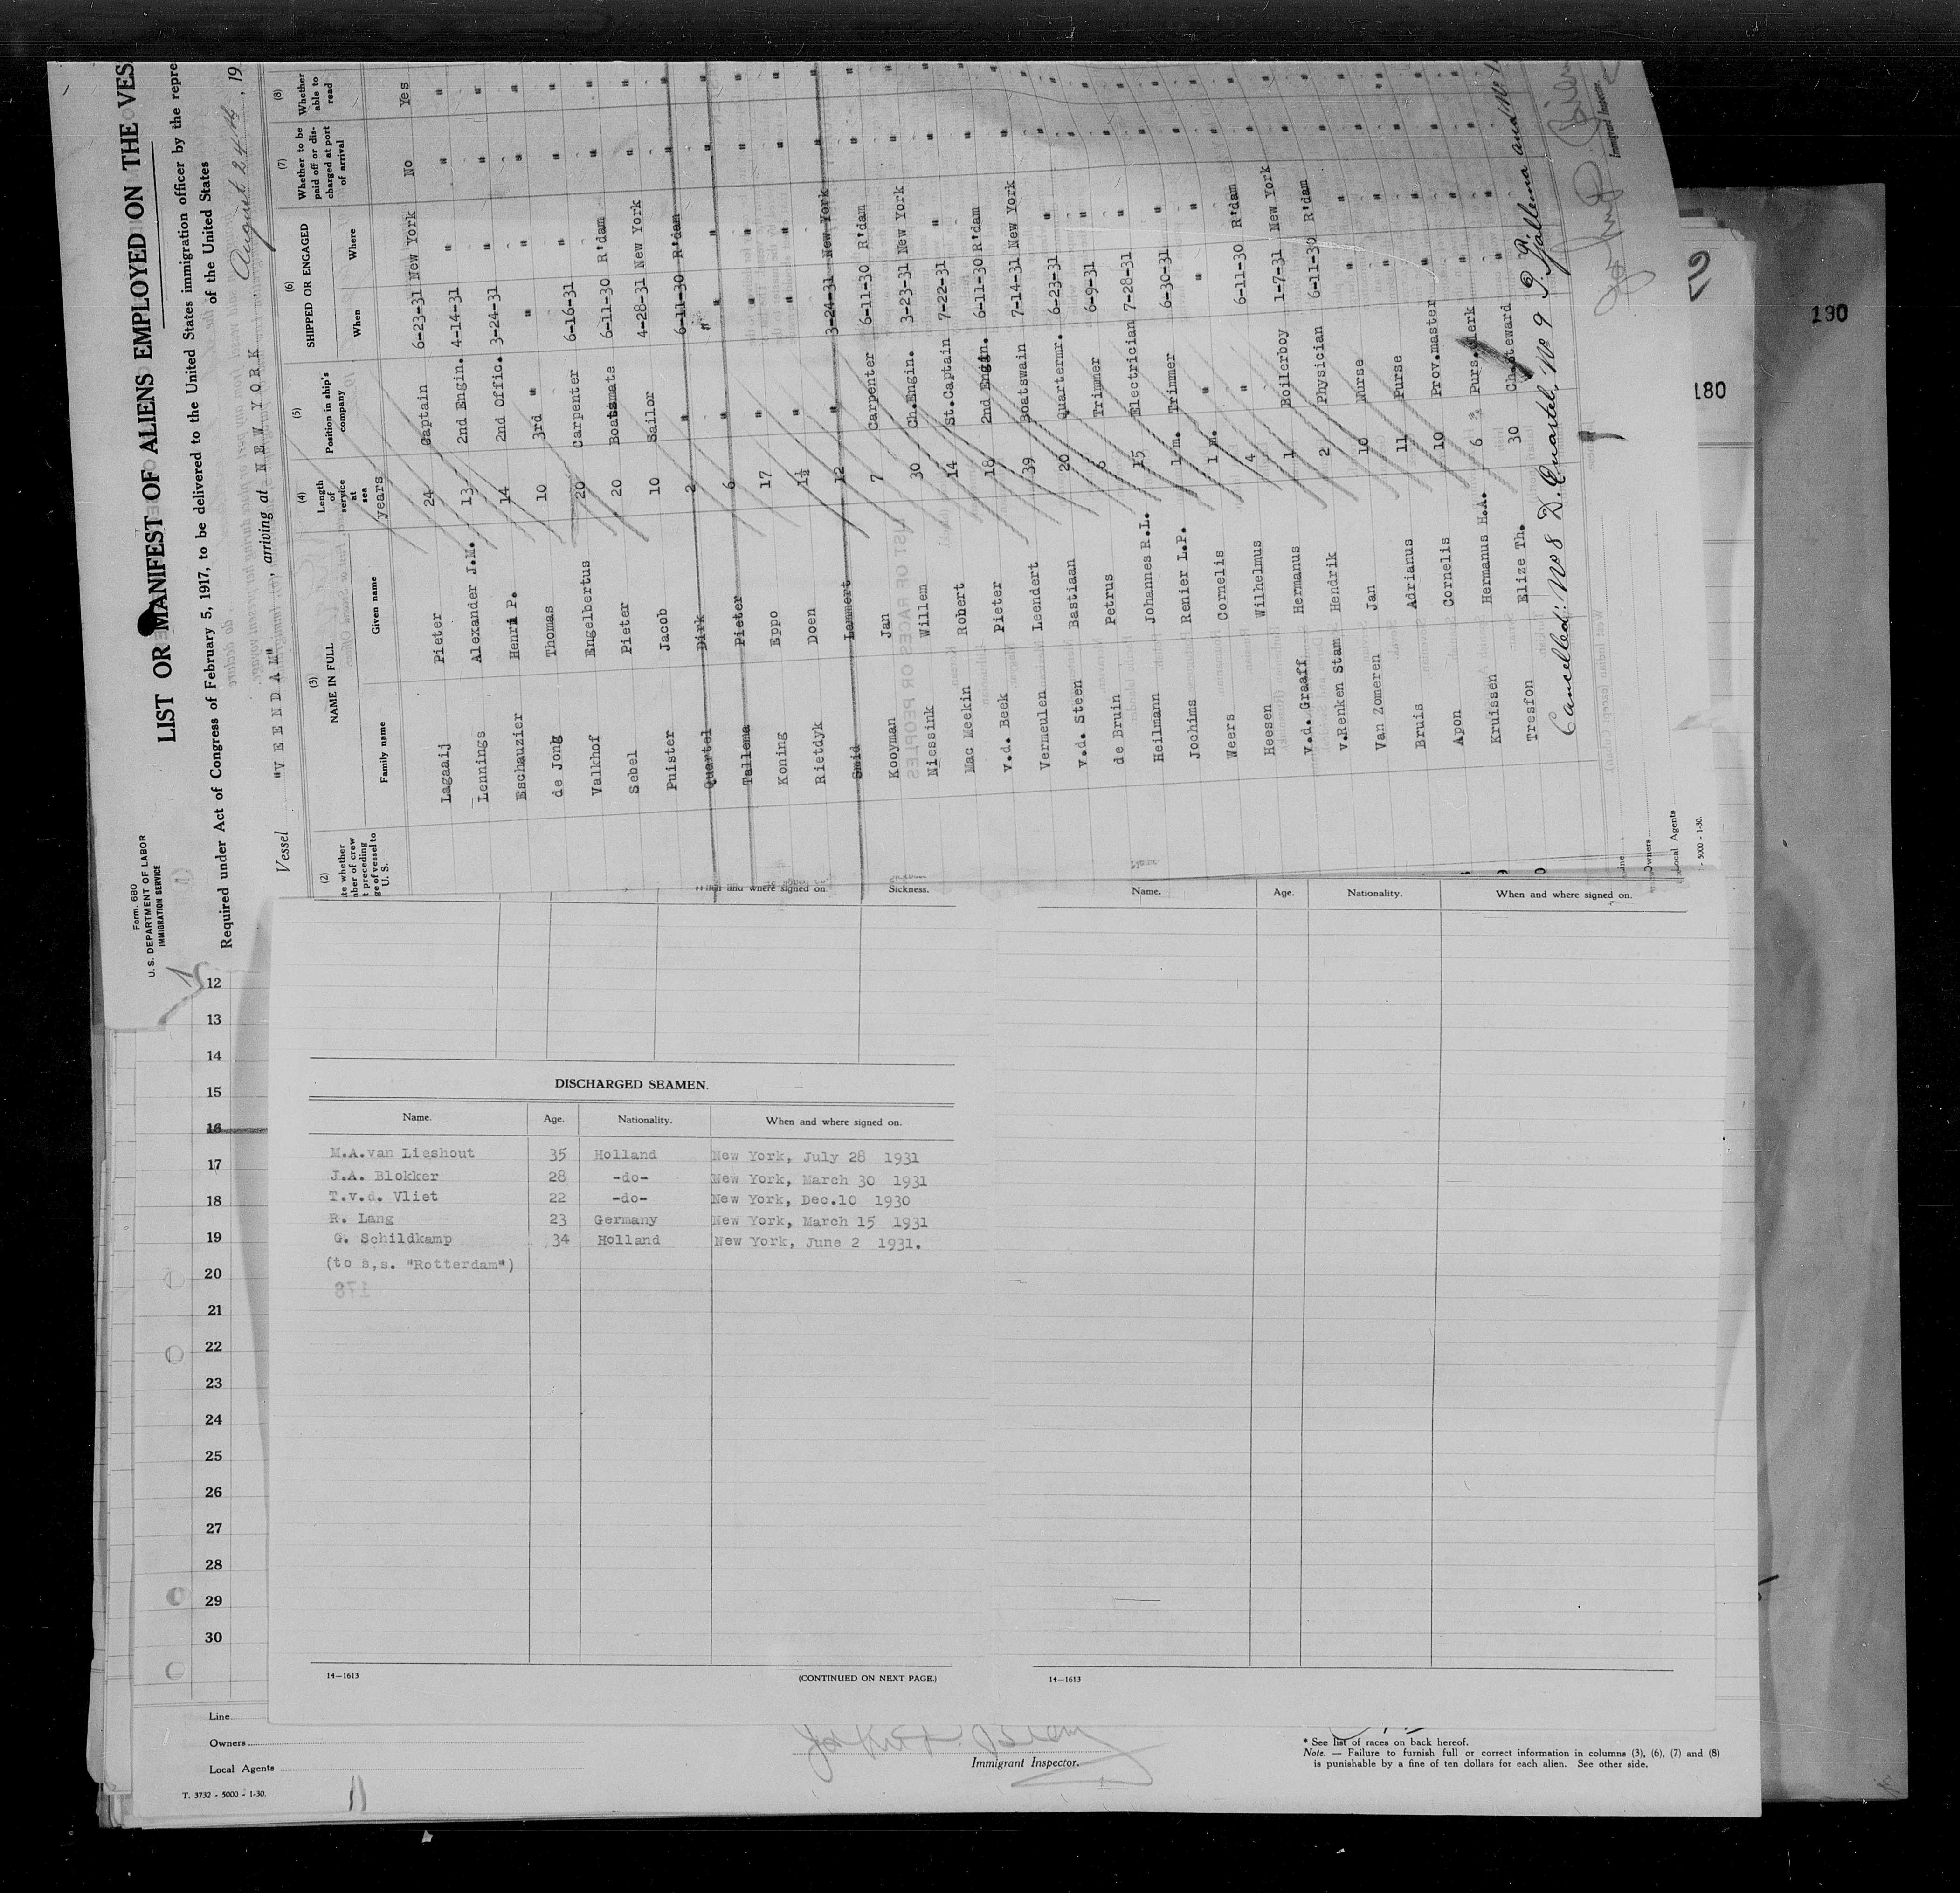 Form. 680
U. S. DEPARTMENT OF LABOR
IMMIGRATION SERVICE
LIST OR MANIFEST OF ALIENS EMPLOYED ON THE VES
Required under Act of Congress of February 5, 1917, to be delivered to the United States immigration officer by the repre
of the United States
Vessel "VEENDAM", arriving at NEW YORK, August 24th, 19
(2) (3) (4) (5) (6) (7) (8)
NAME IN FULL
Family name Given name
Length of service at sea
Position in ship's company
SHIPPED OR ENGAGED
When Where
Whether to be paid off or discharged at port of arrival
Whether able to read
years
Lagaaij Pieter 24 Captain 6-23-31 New York No Yes
Lennings Alexander J.M. 13 2nd Engin. 4-14-31 " " "
Eschauzier Henri P. 14 2nd Offic. 3-24-31 " " "
de Jong Thomas 10 3rd " " " " "
Valkhof Engelbertus 20 Carpenter 6-16-31 " " "
Sebel Pieter 20 Boatsmate 6-11-30 R'dam " "
Puister Jacob 10 Sailor 4-28-31 New York " "
Quartel Dirk 2 " 6-11-30 R'dam " "
Tallema Pieter 6 " " " " "
Koning Eppo 17 " " " " "
Rietdyk Doen 1½ " " " " "
Smid Lammert 12 " 3-24-31 New York " "
Kooyman Jan 7 Carpenter 6-11-30 R'dam " "
Niessink Willem 30 Ch.Engin. 3-23-31 New York " "
Mac Meekin Robert 14 St.Captain 7-22-31 " " "
v.d. Beek Pieter 18 2nd Engin. 6-11-30 R'dam " "
Vermeulen Leendert 39 Boatswain 7-14-31 New York " "
v.d. Steen Bastiaan 20 Quartermr. 6-23-31 " " "
de Bruin Petrus 6 Trimmer 6-9-31 " " "
Heilmann Johannes R.L. 15 Electrician 7-28-31 " " "
Jochims Renier L.P. 1 m. Trimmer 6-30-31 " " "
Weers Cornelis 1 m. " " " " "
Heesen Wilhelmus 4 " 6-11-30 R'dam " "
v.d. Graaff Hermanus 1 Boilerboy 1-7-31 New York " "
v.Renken Stam Hendrik 2 Physician 6-11-30 R'dam " "
Van Zomeren Jan 10 Nurse " " " "
Bruis Adrianus 11 Purse " " " "
Apon Cornelis 10 Prov.master " " " "
Kruissen Hermanus H.A. 6 Purs.clerk " " " "
Tresfon Elize Th. 30 Ch.Steward " " " "
Cancelled: No 8 D. Quartel, No 9 P. Tallema and No 1
Immigrant Inspector.
Owners
Local Agents
- 5000 - 1-30.
190
180
When and where signed on. Sickness.
Name. Age. Nationality. When and where signed on.
12
13
14
15
16
17
18
19
20
21
22
23
24
25
26
27
28
29
30
DISCHARGED SEAMEN.
Name. Age. Nationality. When and where signed on.
M.A.van Lieshout 35 Holland New York, July 28 1931
J.A. Blokker 28 -do- New York, March 30 1931
T.v.d. Vliet 22 -do- New York, Dec.10 1930
R. Lang 23 Germany New York, March 15 1931
G. Schildkamp 34 Holland New York, June 2 1931.
(to s,s. "Rotterdam")
178
14—1613 (CONTINUED ON NEXT PAGE.)
14—1613
Line
Owners
Local Agents
T. 3732 - 5000 - 1-30.
Immigrant Inspector.
* See list of races on back hereof.
Note. — Failure to furnish full or correct information in columns (3), (6), (7) and (8)
is punishable by a fine of ten dollars for each alien. See other side.